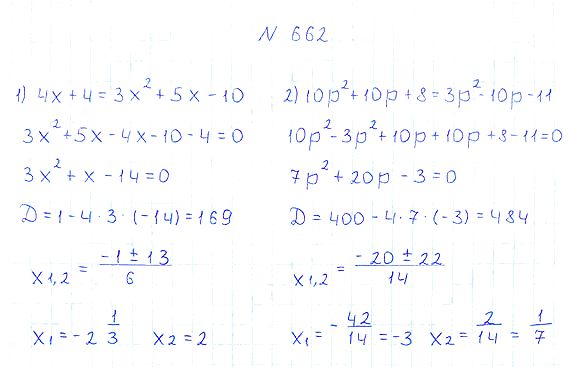 N 662
1) 4x + 4 = 3x² + 5x - 10
3x² + 5x - 4x - 10 - 4 = 0
3x² + x - 14 = 0
D = 1 - 4 · 3 · (-14) = 169
x1,2 = (-1 ± 13)/6
x1 = -2 1/3 x2 = 2
2) 10p² + 10p + 8 = 3p² - 10p - 11
10p² - 3p² + 10p + 10p + 8 - 11 = 0
7p² + 20p - 3 = 0
D = 400 - 4 · 7 · (-3) = 484
x1,2 = (-20 ± 22)/14
x1 = -42/14 = -3 x2 = 2/14 = 1/7